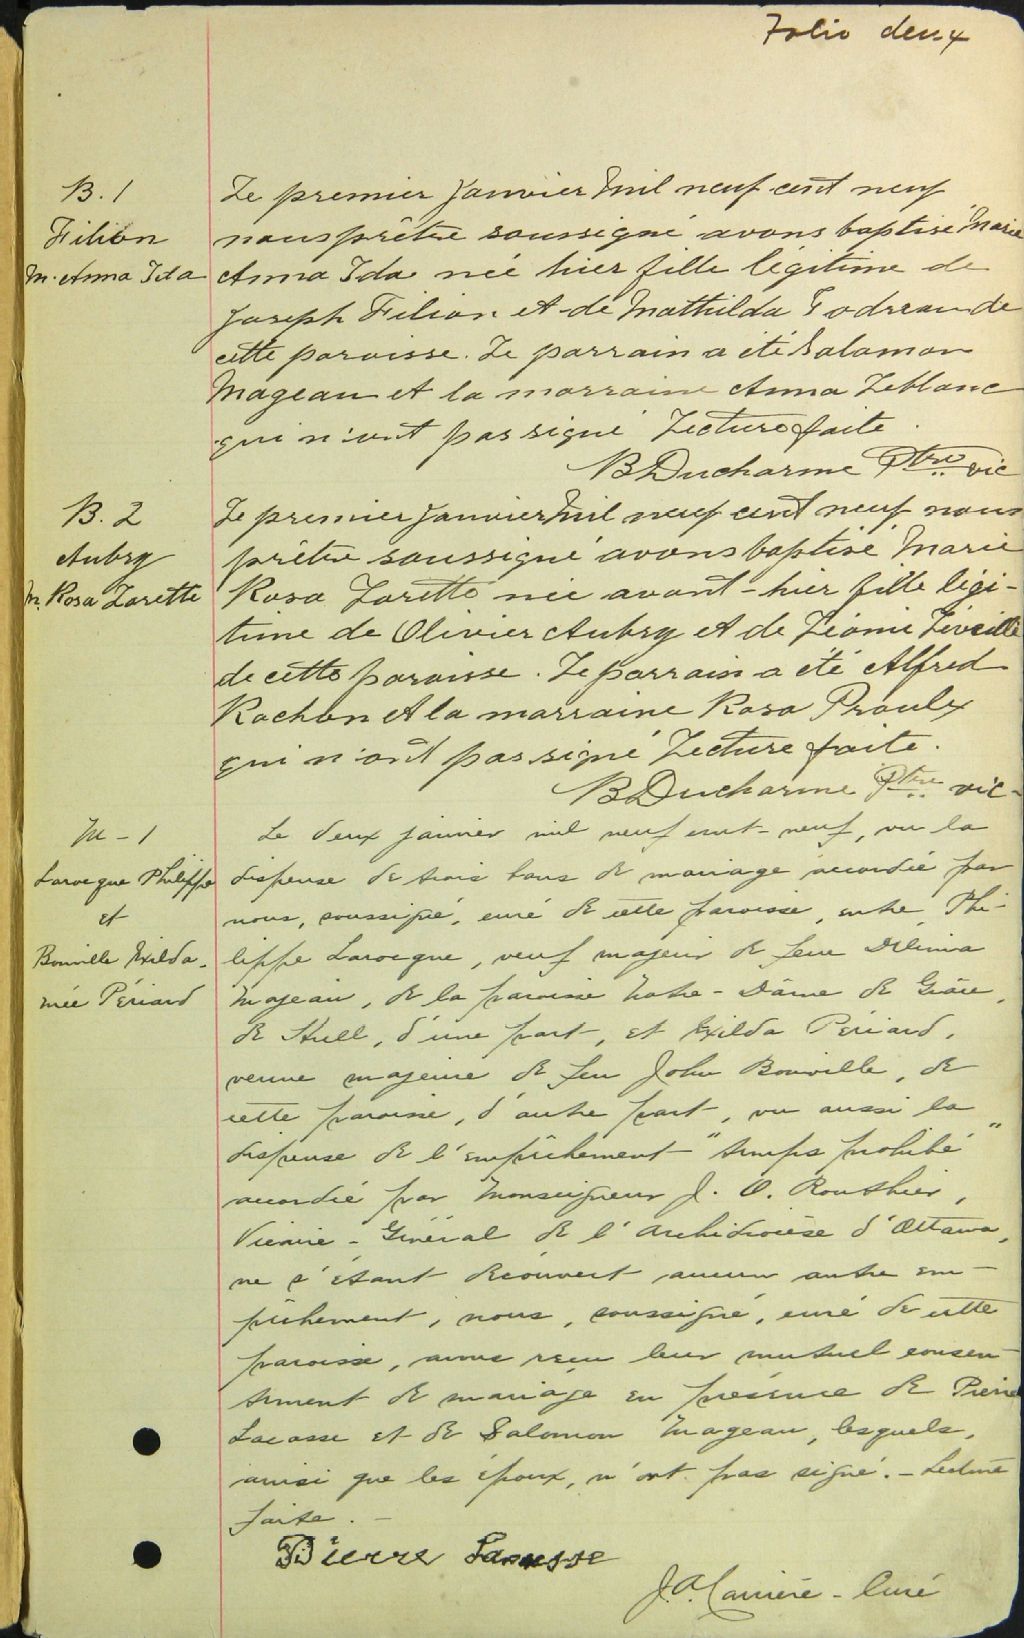 Folio deux
B. 1
Filion
M. Anna Ida
Le premier Janvier Mil neuf cent neuf
nous prêtre soussigné avons baptisé Marie
Anna Ida née hier fille légitime de
Joseph Filion et de Mathilda Godreau de
cette paroisse. Le parrain a été Salomon
Mageau et la marraine Anna Leblanc
qui n'ont pas signé Lecture faite.
B Ducharme Ptre vic
B. 2
Aubry
M. Rosa Lorette
Le premier Janvier Mil neuf cent neuf nous
prêtre soussigné avons baptisé Marie
Rosa Lorette née avant-hier fille légi-
time de Olivier Aubry et de Léonie Léveillé
de cette paroisse. Le parrain a été Alfred
Rochon et la marraine Rosa Proulx
qui n'ont pas signé Lecture faite.
B Ducharme Ptre vic-
M - 1
Larocque Philippe
et
Bonville Exilda.
née Périard
Le deux janvier mil neuf cent-neuf, vu la
dispense de trois bans de mariage accordée par
nous, soussigné, curé de cette paroisse, entre Phi-
lippe Larocque, veuf majeur de feue Délima
Mageau, de la paroisse Notre-Dâme de Grâce,
de Hull, d'une part, et Exilda Périard,
veuve majeure de feu John Bonville, de
cette paroisse, d'autre part, vu aussi la
dispense de l'empêchement "temps prohibé"
accordée par Monseigneur J. O. Routhier,
Vicaire-Général de l'archidiocèse d'Ottawa,
ne s'étant découvert aucun autre em-
pêchement, nous, soussigné, curé de cette
paroisse, avons reçu leur mutuel consen-
tement de mariage en présence de Pierre
Lacasse et de Salomon Mageau, lesquels,
ainsi que les époux, n'ont pas signé. - Lecture
faite. -
Pierre Lacasse
J. A. Carrière - Curé